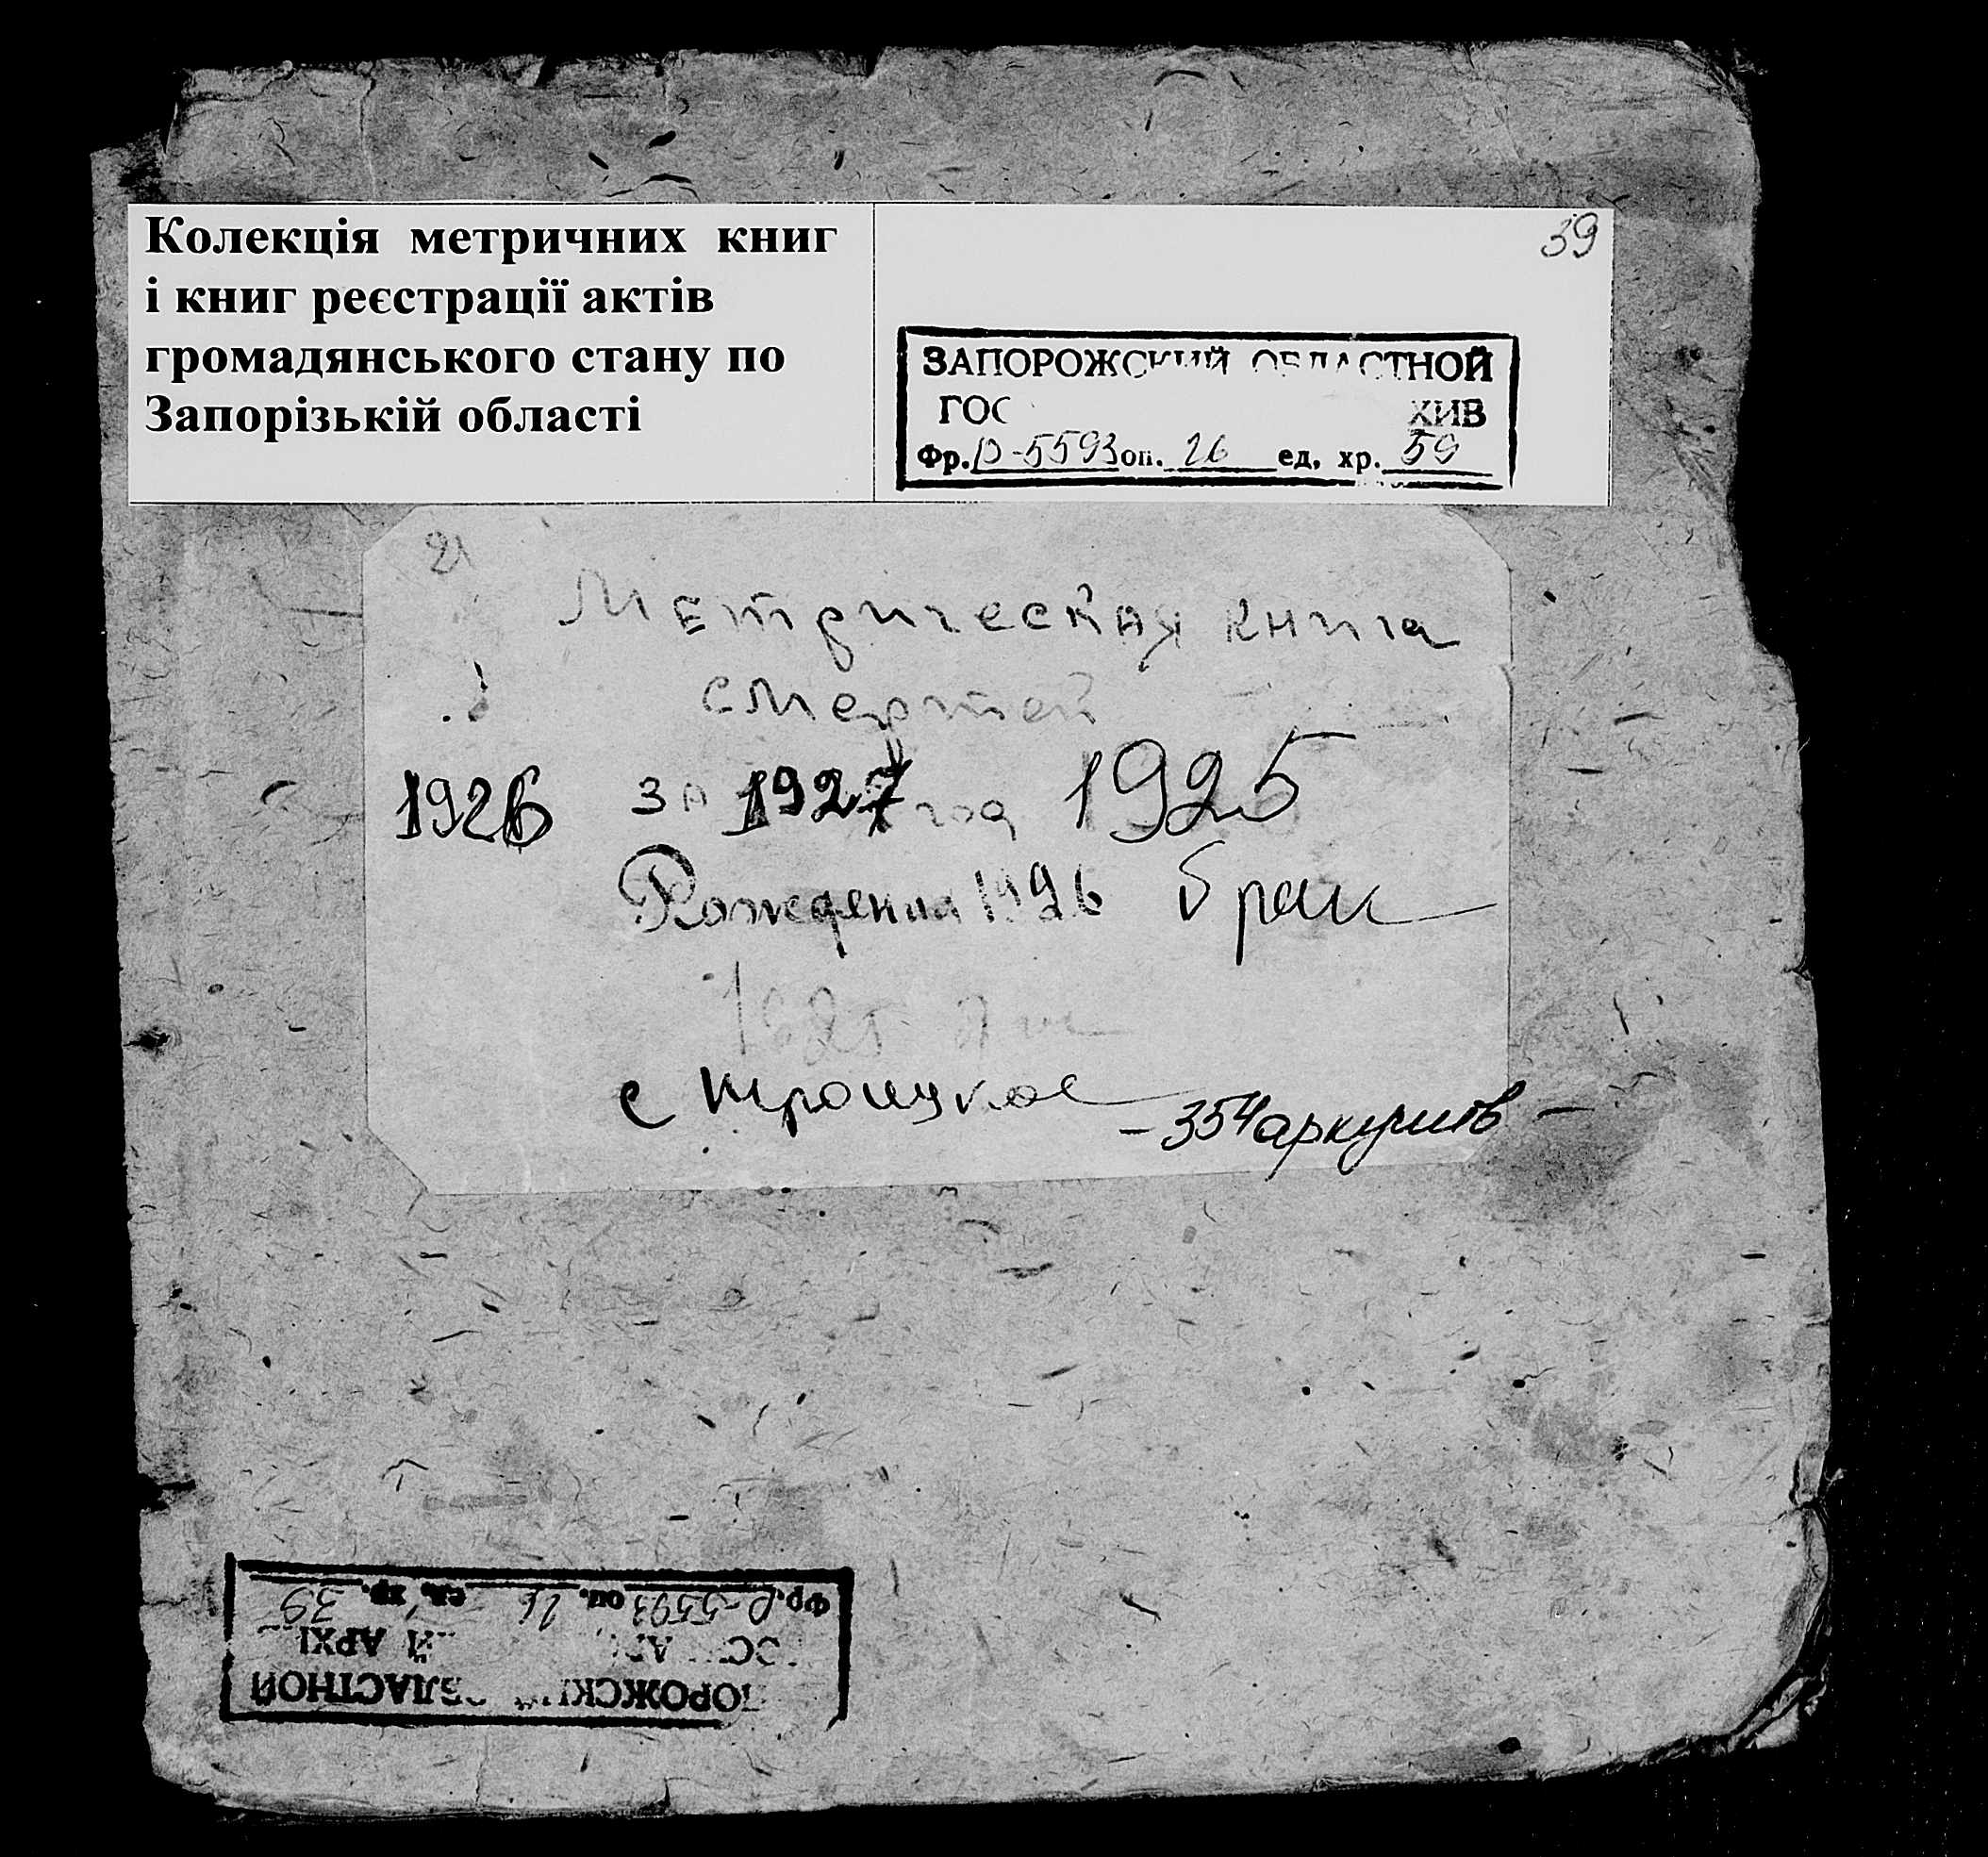 Колекція метричних книг
і книг реєстрації актів
громадянського стану по
Запорізькій області
39
ЗАПОРОЖСКИЙ ОБЛАСТНОЙ
ГОС ХИВ
Фр. Р-5593 оп. 26 ед. хр. 59
Метрическая книга
смертей
1926 за 1927 год 1925
Рождения 1926 брак
с троицкое
- 354 аркушів -
Фр. Р-5593 оп. 26 ед. хр. 39
ОС АР Й АРХІ
ПОРОЖСКИЙ ОБЛАСТНОЙ